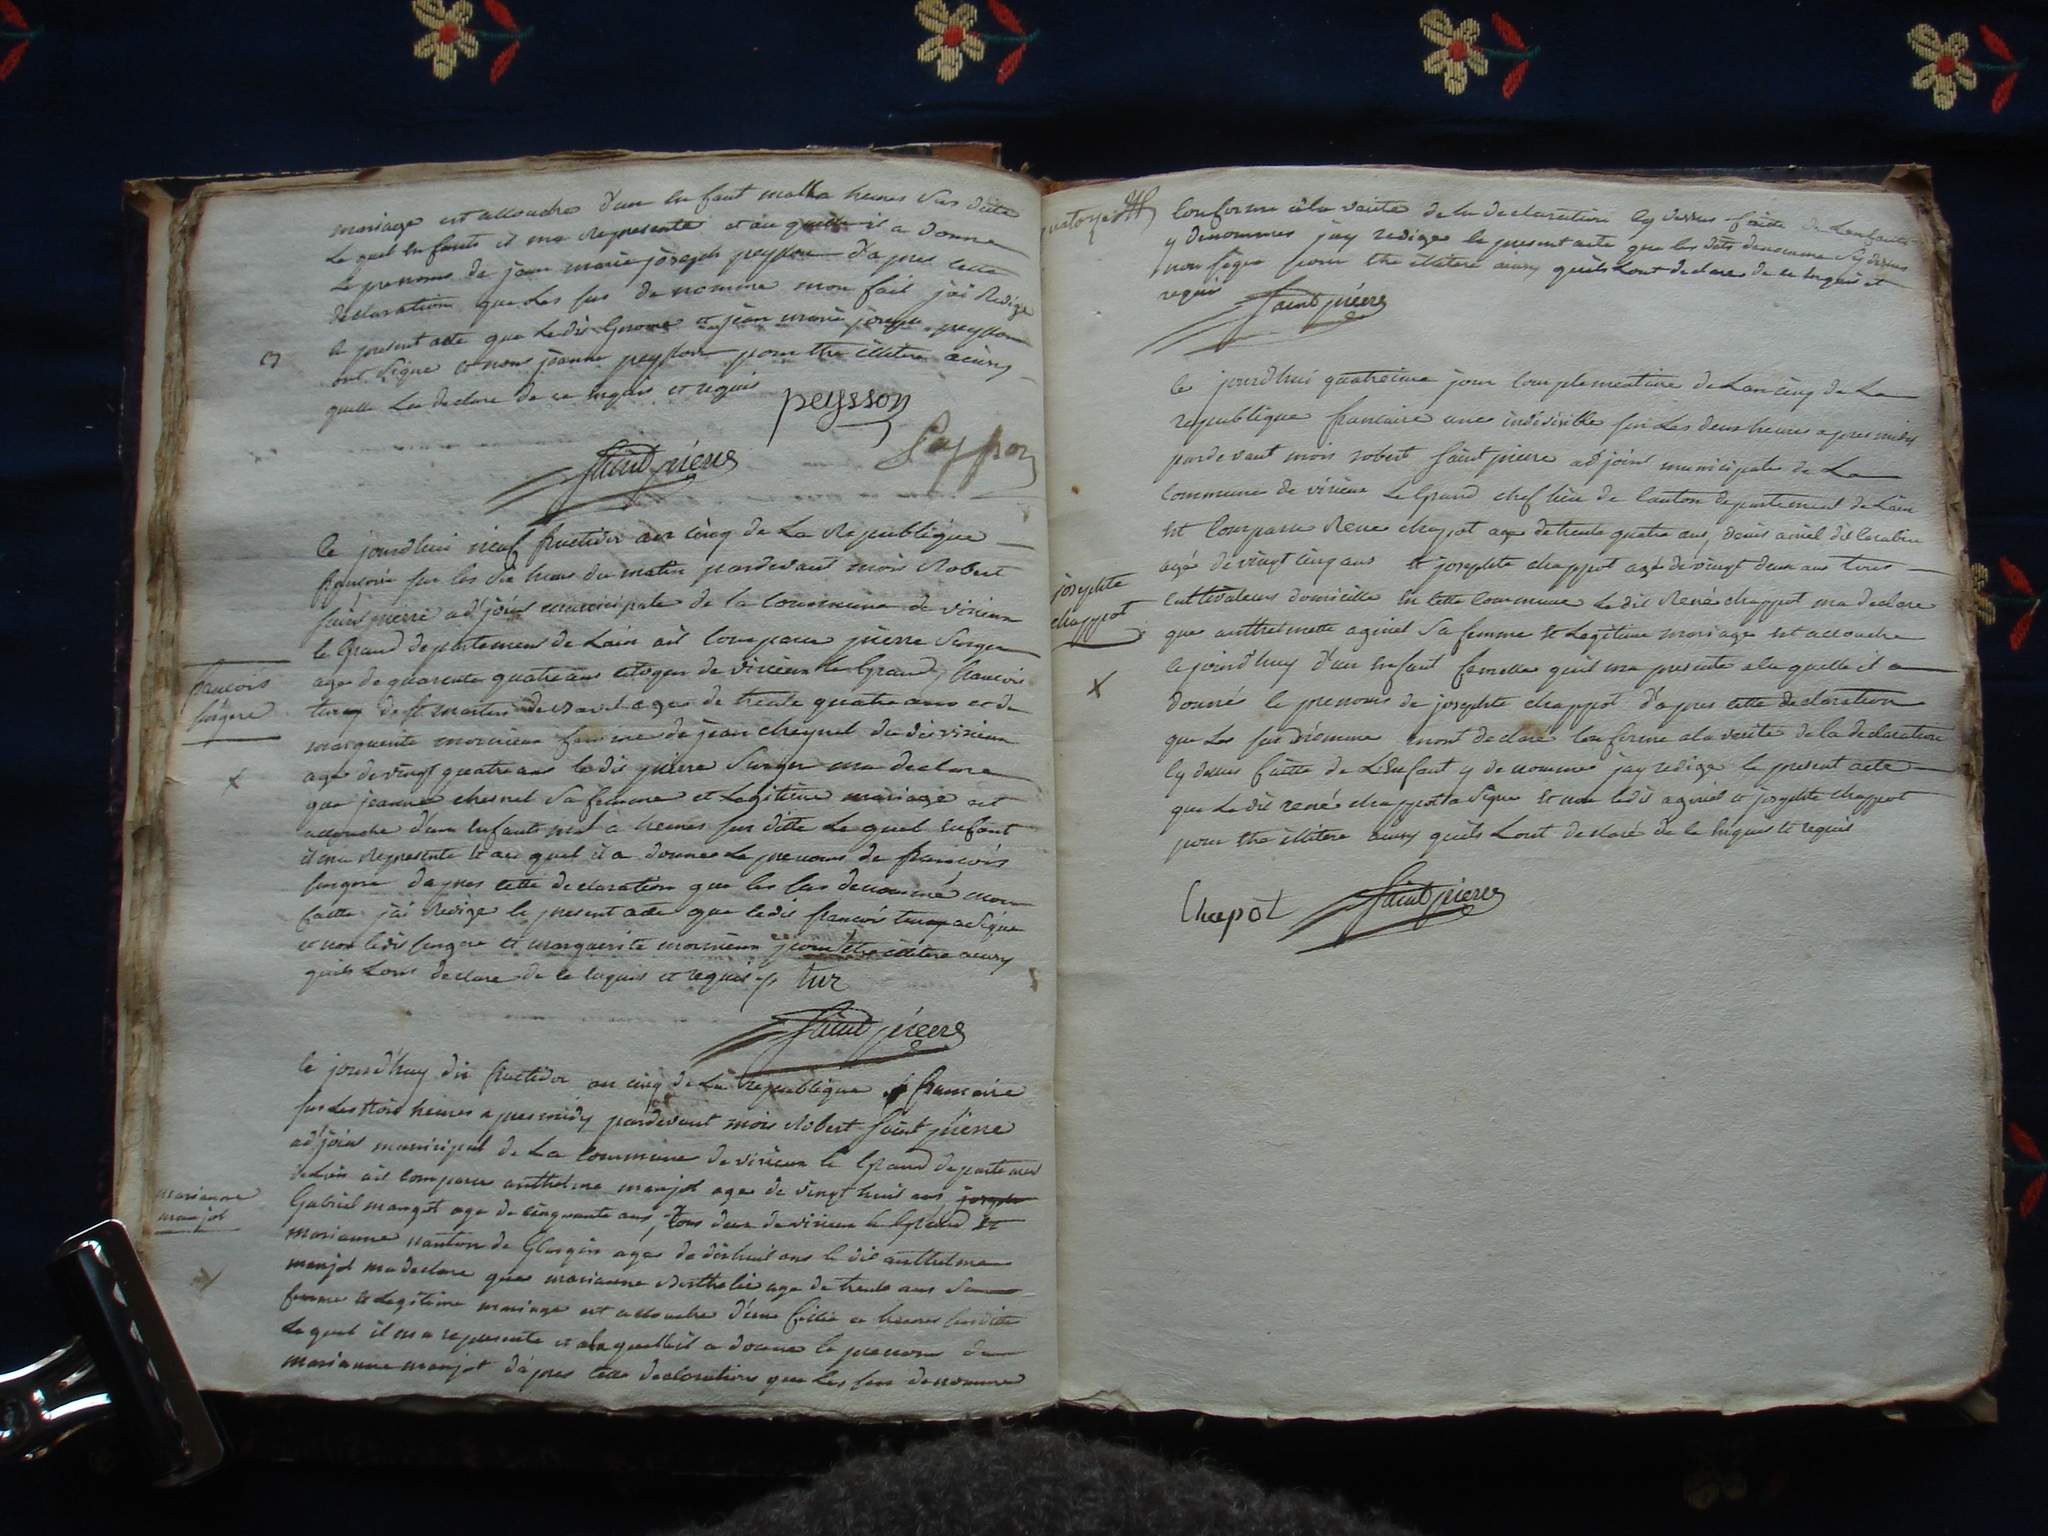 mariage est accouche d'un enfant mall a heures sus ditte
Le quel enfants il ma represente et au quelle il a donne
Le prenoms de jean marie joseph peysson d'apres cette
declaration que Les sus denomme mon fait jai Redige
le present acte que Ledit et jean marie joseph peysson
ont signe et non jeanne peysson pour etre illitere ainsy
quelle La declare de ce enquis et requis
peysson
Saint pierre
Ce jourd'hui neuf fructidor an cinq de La Republique
françoise sur les dix heures du matin pardevant mois Robert
saint pierre adjoint municipale de la commune de virieux
le Grand departement de Lain ait comparu pierre
age de quarente quatre ans citoyen de virieux le Grand, francois
de st martin de age de trente quatre ans et de
marguerite femme de jean cheynel du dit virieux
age de vingt quatre ans le dit pierre ma declare
que jeanne chesnel sa femme et Legitime mariage est
accouche d'un enfants mal a heures sus ditte Le quel enfant
il ma represente et au quel il a donne Le prenoms de francois
d'apres cette declaration que les sus denommé mon
faitte jai Redige le present acte que ledit francois a signe
et non ledit et marguerite pour etre illitere ainsy
quils Lont declare de ce enquis et requis tur
Saint pierre
francois
marianne
manjot
Ce jourd'huy dix fructidor an cinq de La republique francaise
sur Les trois heures apres midy pardevant mois Robert Saint pierre
adjoint municipal de La commune de virieux le Grand departement
de Lain ait comparu anthelme manjot age de vingt huit ans joseph
Gabriel mangot age de cinquante ans, tous deux de virieux le Grand et
marianne de age de dixhuit ans le dit anthelme
manjot ma declare que marianne Berthelie age de trente ans sa
femme et Legitime mariage est accouche d'une fille a heures susditte
Laquel il ma represente et a la quelle il a donne le prenom de
marianne manjot d'apres cette declarations que Les sus denomme
Conforme a la verite de la declaration cy dessus faitte de Lenfants
y denommes jay redige le present acte que les dits denomme cy dessus
non signe pour etre illitere ainsy quils Lont declare de ce enquis et
requis
Saint pierre
josephte
chappot
Ce jourd'hui quatreime jour complementaire de Lan cinq de La
republique francaise une indivisible sur Les deux heures apres midy
pardevant mois robert Saint pierre adjoint municipale de La
commune de virieux Le Grand chef lieu de canton departement de Lain
est comparu Rene chappot age de trente quatre ans, denis aginel
agé de vingt cinq ans et josephte chappot agé de vingt deux ans tous
cultivateurs domicillie en cette commune Le dit René chappot ma declare
que anthelmette aginel Sa femme et Legitime mariage est accouche
ce jourd'huy d'un enfant femelle quil ma presente a la quelle il a
donné le prenoms de josephte chappot d'apres cette declaration
que Les sus denomme mont declare conforme a la verité de la declaration
cy dessus faitte de Lenfant y denomme jay redige le present acte
que Le dit rené chappot a signe et non ledit aginel et josephte chappot
pour etre illitere ainsy quils Lont declaré de ce enquis et requis
Chapot
Saint pierre